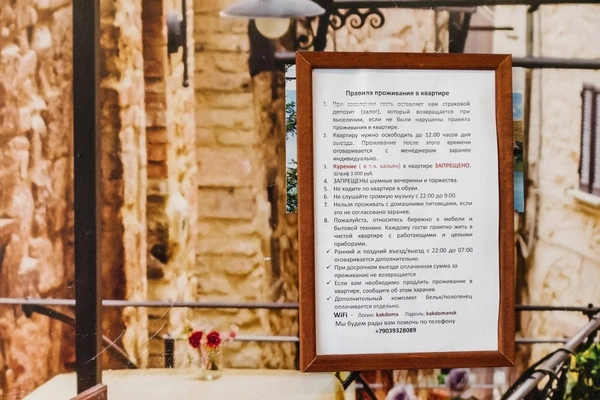 Правила проживания в квартире
1. При заселении гость оставляет нам страховой
депозит (залог), который возвращается при
выселении, если не были нарушены правила
проживания в квартире.
2. Квартиру нужно освободить до 12:00 часов дня
выезда. Проживание после этого времени
оговаривается с менеджером заранее
индивидуально.
3. Курение ( в т.ч. кальян) в квартире ЗАПРЕЩЕНО.
Штраф 3 000 руб.
4. ЗАПРЕЩЕНЫ шумные вечеринки и торжества.
5. Не ходите по квартире в обуви.
6. Не слушайте громкую музыку с 22:00 до 9:00.
7. Нельзя проживать с домашними питомцами, если
это не согласовано заранее.
8. Пожалуйста, относитесь бережно к мебели и
бытовой технике. Каждому гостю приятно жить в
чистой квартире с работающими и целыми
приборами.
✓ Ранний и поздний въезд/выезд с 22:00 до 07:00
оговаривается дополнительно.
✓ При досрочном выезде оплаченная сумма за
проживание не возвращается
✓ Если вам необходимо продлить проживание в
квартире, сообщите об этом заранее.
✓ Дополнительный комплект белья/полотенец
оплачивается отдельно.
WiFi - Логин: kakdoma Пароль: kakdomansk
Мы будем рады вам помочь по телефону
+79039328089